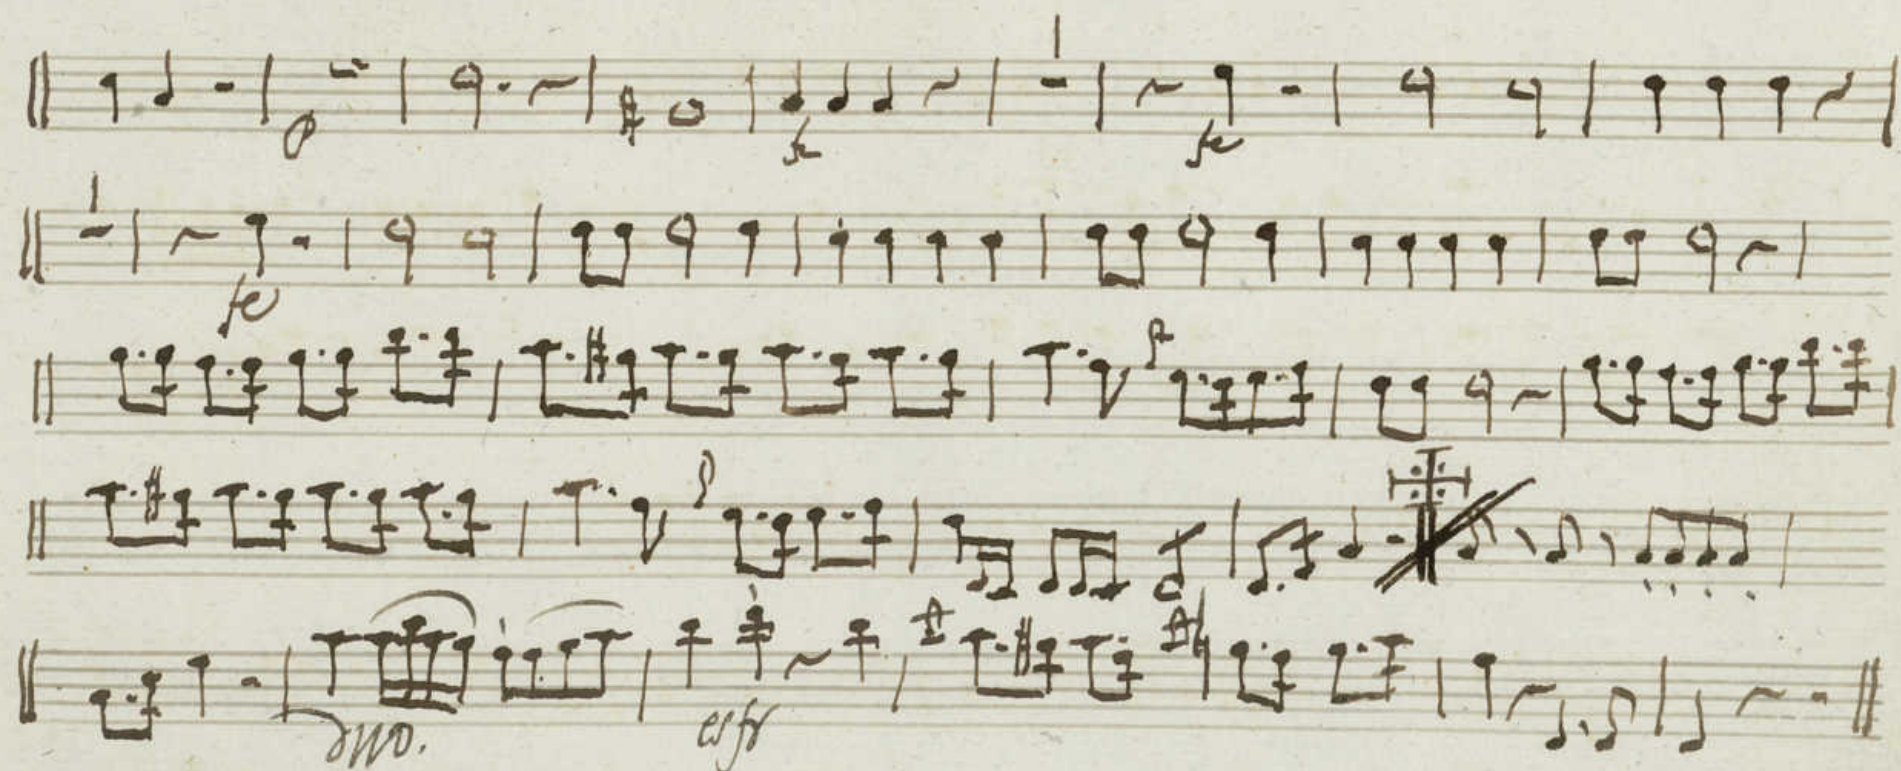 p fe fe
fe
p
p
duo. esfr